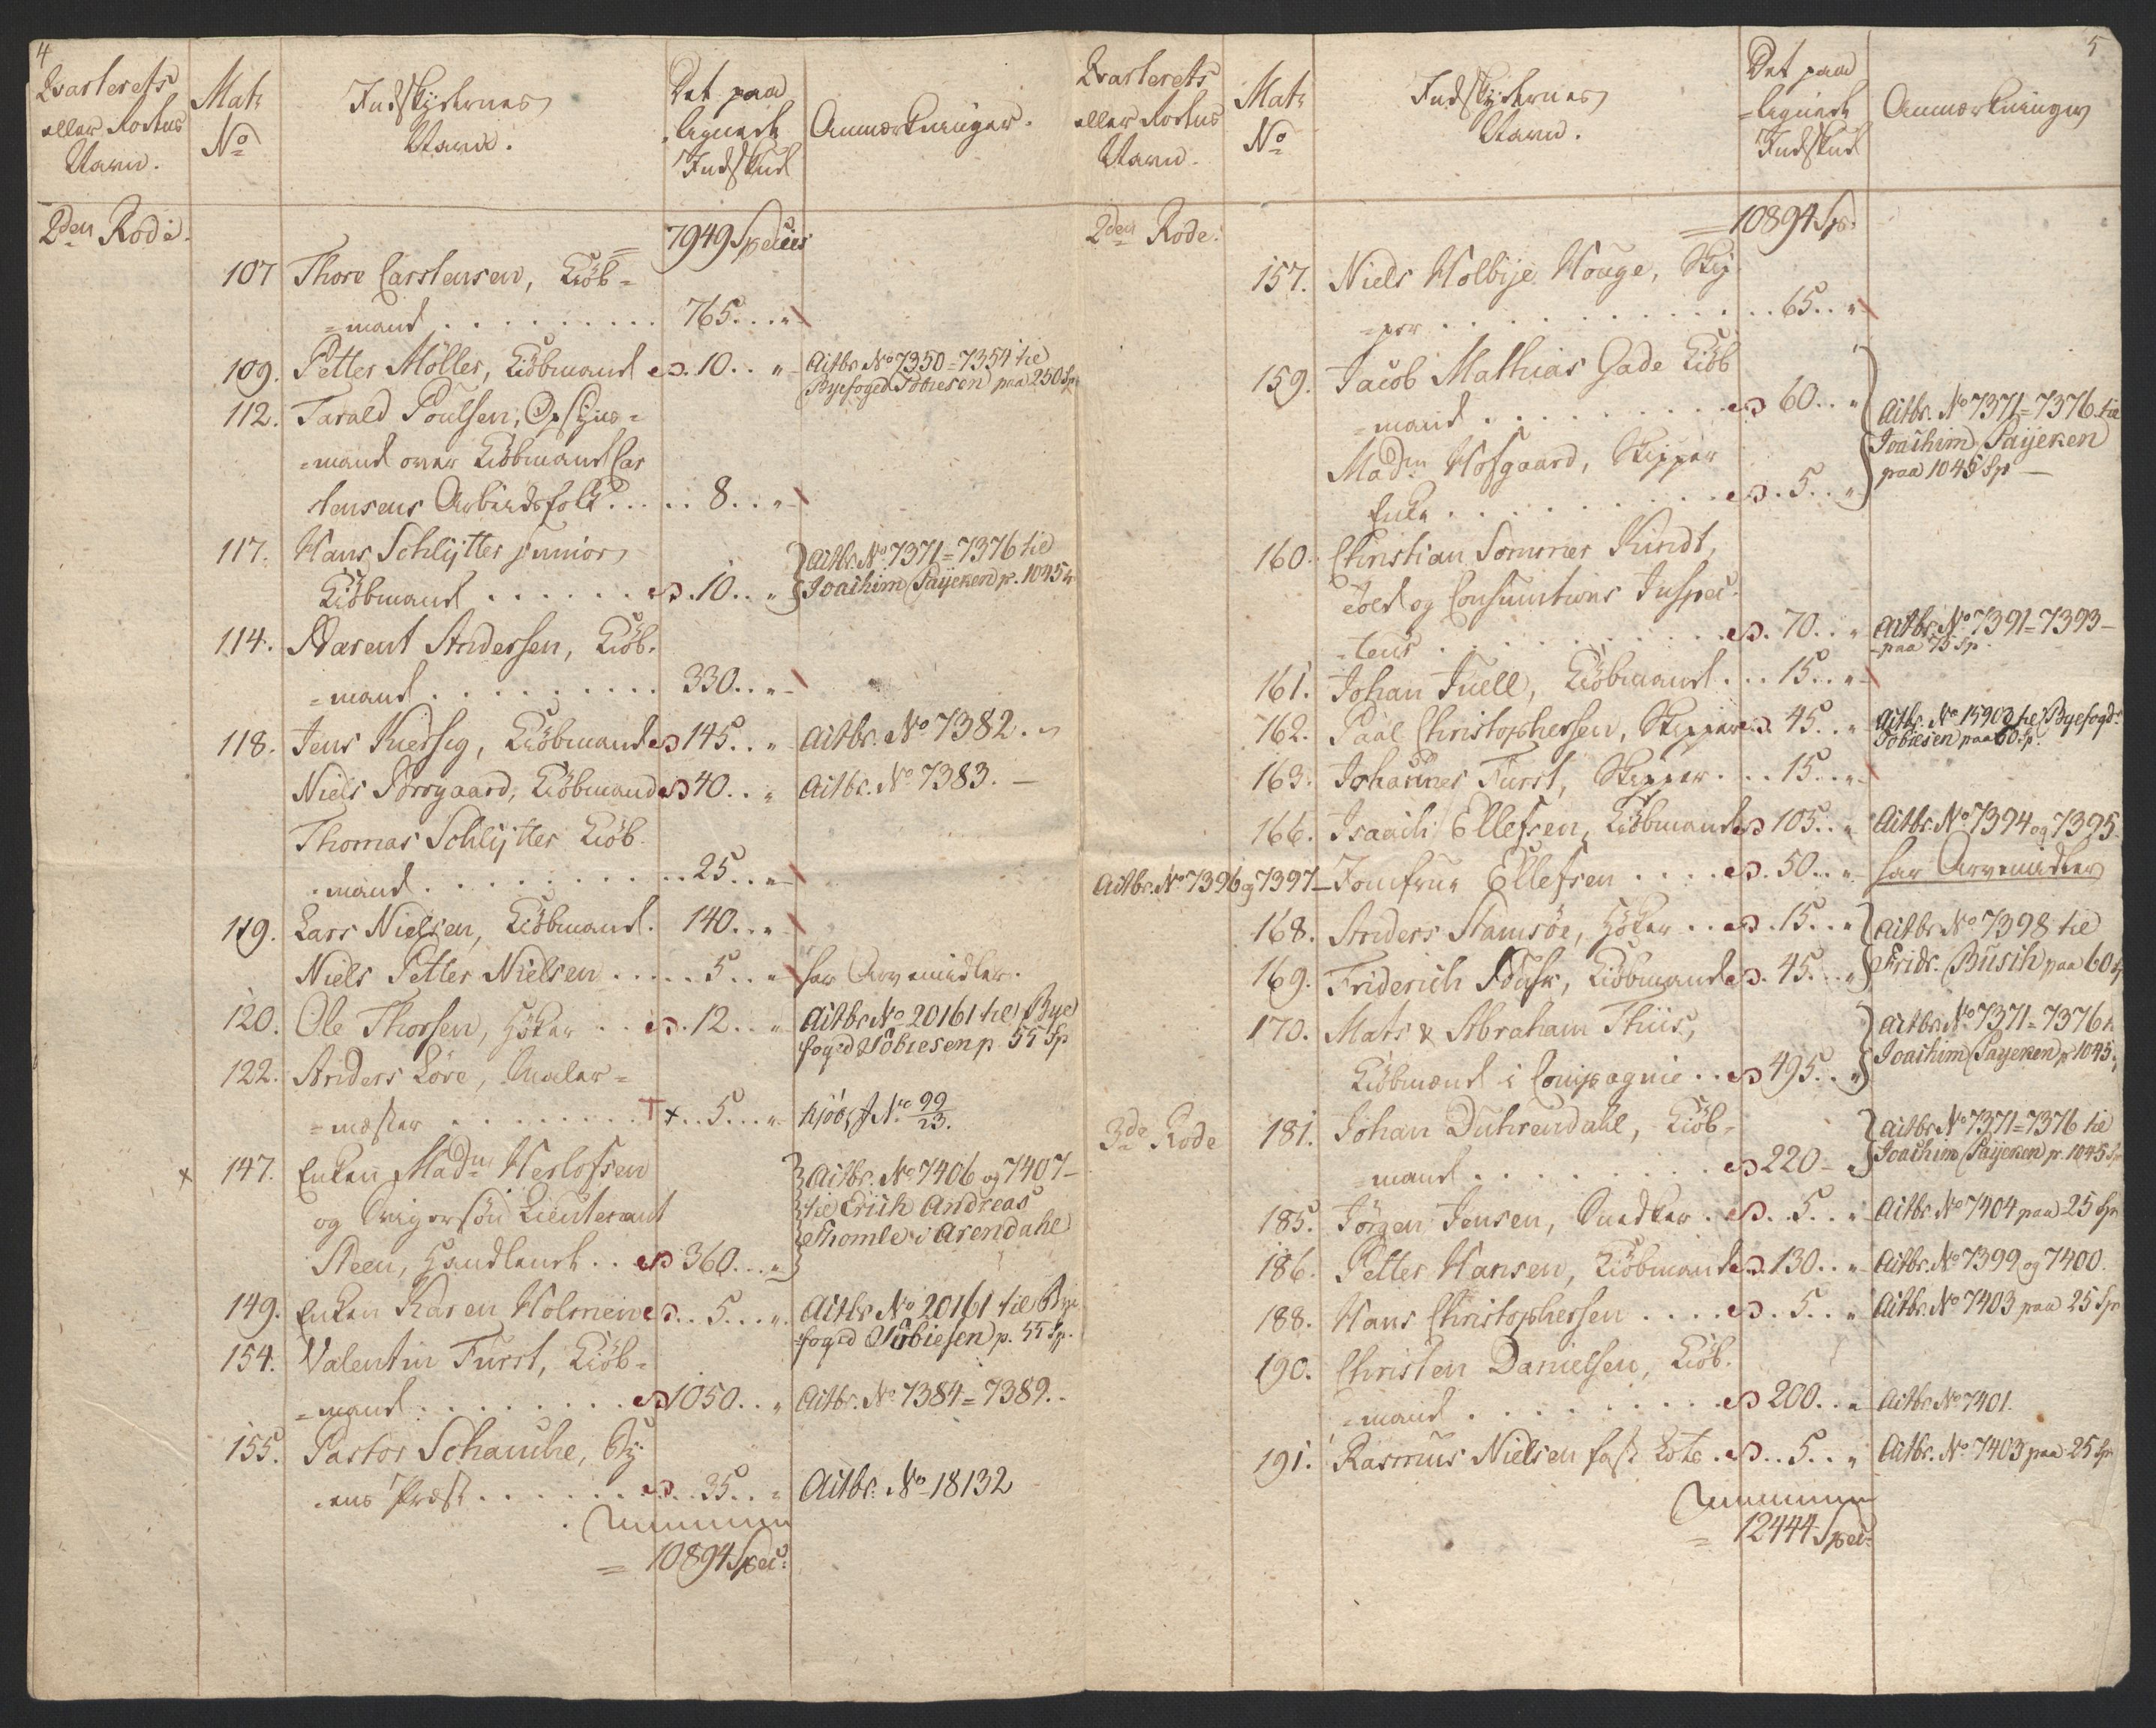 4
Qvarterets
eller Rodens
Navn.
Mats
No
Indskydernes
Navn.
Det paa
lignede
Indskud
Anmærkninger.
2den Rode.
= 7949 Species
107 Thore Carstensen, Kiøb=
=mand . . . . . . . . . 765. . . "
109. Petter Möller, Kiöbmand 10. . "
Actbr. No 7350=7354 til
Byefoged Tobiesen paa 250 Sp
112. Tarald Poulsen, Opsyns=
=mand over Kiöbmand Car
stensens Arbeidsfolk . . . . 8. . "
117. Hans Schlytter junior
Kiöbmand . . . . . . 10. . "
Actbr. No 7371=7376 til
Joachim Paÿcken p. 1045
114. Aarent Andersen, Kiöb.
=mand . . . . . . . . . 330. . "
118. Jens Kiersig, Kiöbmand 145. . "
Actbr. No 7382.
Niels Borsgaard, Kiöbmand 40. . "
Actbr. No 7383. —
Thomas Schlytter Kiöb
=mand . . . . . . . . . 25. . "
119. Lars Nielsen, Kiöbmand. 140. . "
Niels Petter Nielsen . . . . . 5. . "
har Arvemidler.
120. Ole Thorsen, Höker . . 12. . "
Actbr No 20161 til Bye
foged Tobiesen p. 55 Sp
122. Anders Löve, Maler=
=mester . . . . . . . + . . 5. . . "
No 99/23.
x 147. Enken Madm Herlofsen
og Svigersön Lieutenant
Steen, Handlende . . 360. . . "
Actbr. No 7406 og 7407—
til Erich Andreas
Thomle i Arendahl
149. Enken Karen Holmen . . 5. . . "
Actbr No 20161 til Bye
=foged Tobiesen p. 55 Sp.
154. Valentin Furst, Kiöb=
=mand . . . . . . . . 1050. . "
Actbr. No 7384=7389.
155. Pastor Schanche, By=
=ens Præst . . . . . . . 35. . "
Actbr. No 18132
= 10894 Spec:
5
Qvarterets
eller Rodens
Navn.
Mats
No
Indskydernes
Navn.
Det paa
=lignede
Indskud
Anmærkninger
2den Rode.
= 10894 Sp.
157. Niels Holbye Houge, Skip
=per . . . . . . . . . . . . . 65. . "
159. Jacob Mathias Gade Kiöb
=mand . . . . . . . . . 60. . "
Actbr. No 7371=7376 til
Joachim Paÿcken
paa 1045 Sp —
Madm Hofgaard, Skipper
Enke . . . . . . . . . . 5. . "
160. Christian Sommer Kindt,
Told og Consumtions Inspec=
=teur . . . . . . . . . . 70. . "
Actbr. No 7391=7393—
paa 75 Sp.
161. Johan Juell, Kiöbmand . . . 15. . "
162. Paal Christophersen, Skipper 45. . "
Actbr. No 15903 til Byefogd
Tobiesen paa 60 Sp.
163. Johannes Furst, Skipper . . . 15. . "
166. Isaach Ellefsen, Kiöbmand 105. . "
Actbr. No 7394 og 7395.
Actbr. No 7396 og 7397— Jomfrue Ellefsen . . . . 50. . "
har Arvemidler
168. Anders Stamsöe, Höker . . 15. . "
Actbr No 7398 til
Fridr. Busch paa 60 Sp
169. Friderich Busk, Kiöbmand 45. . "
170. Mats & Abraham Thiis,
Kiöbmænd i Compagnie . . 495. . "
Actbr. No 7371=7376
Joachim Paycken p. 1045
3de Rode
181. Johan Duhrendahl, Kiöb=
=mand . . . . . . . . 220— "
Actbr. No 7371=7376 til
Joachim Paÿcken p. 1045 Sp
185. Jörgen Jensen, Snedker . . 5. . "
Actbr. No 7404 paa 25 Sp
186. Petter Hansen, Kiöbmand 130. . "
Actbr. No 7399 og 7400.
188. Hans Christophersen . . . . 5. . "
Actbr. No 7403 paa 25 Sp
190. Christen Danielsen, Kiöb.
=mand . . . . . . . . . 200. . "
Actbr. No 7401.
191. Rasmus Nielsen fast Lots . . 5. . "
Actbr. No 7403 paa 25 Sp
= 12444 Spec: